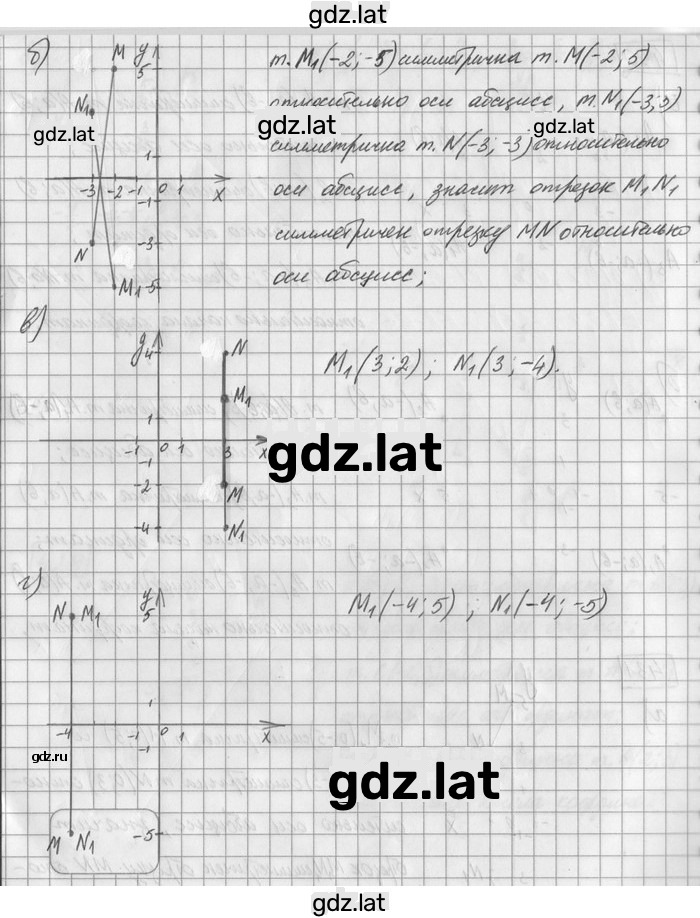 gdz.lat
б)
M y
5
N₁
1
-3 -2 -1 0 1 x
-1
N -3
M₁ -5
т. M₁(-2; -5) симметрична т. M(-2; 5)
относительно оси абсцисс, т. N₁(-3; 3)
gdz.lat gdz.lat gdz.lat
симметрична т. N(-3; -3) относительно
оси абсцисс, значит отрезок M₁N₁
симметричен отрезку MN относительно
оси абсцисс;
в)
y
4 N
M₁
1
-1 0 1 3 x
-1
-2 M
-4 N₁
M₁(3; 2); N₁(3; -4).
gdz.lat
г)
y
N M₁ 5
1
-4 -1 0 1 x
-1
M N₁ -5
M₁(-4; 5) ; N₁(-4; -5)
gdz.ru
gdz.lat
gdz.lat